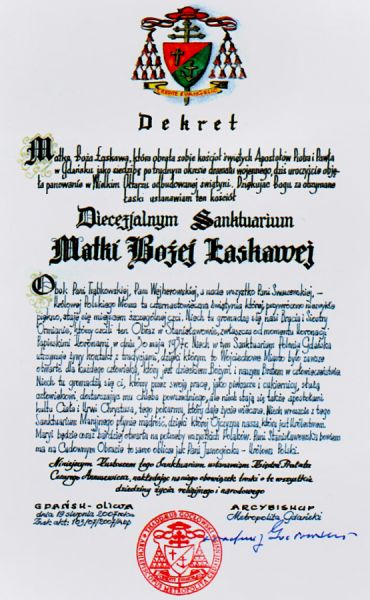 CREDITE EVANGELIO
Dekret
Matka Boża Łaskawa, która obrała sobie kościół świętych Apostołów Piotra i Pawła
w Gdańsku jako siedzibę po trudnym okresie dramatu wojennego, dziś uroczyście obję-
ła panowanie w Wielkim Ołtarzu odbudowanej świątyni. Dziękując Bogu za otrzymane
łaski ustanawiam ten kościół
Diecezjalnym Sanktuarium
Matki Bożej Łaskawej
Obok Pani Trąbkowskiej, Pani Wejherowskiej, a nade wszystko Pani Swarzewskiej –
Królowej Polskiego Morza ta czternastowieczna świątynia, której przywrócono niezwykłe
piękno, staje się miejscem szczególnej czci. Niech tu gromadzą się nasi Bracia i Siostry
Ormianie, którzy czcili ten Obraz w Stanisławowie, zwłaszcza od momentu koronacji
Papieskimi koronami w dniu 30 maja 1937r. Niech w tym Sanktuarium Polonia Gdańska
utrzymuje żywy kontakt z tradycjami, dzięki którym to Wojciechowe Miasto było zawsze
otwarte dla każdego człowieka, który jest dzieckiem Bożym i naszym Bratem w człowieczeństwie.
Niech tu gromadzą się ci, którzy przez swoją pracę, jako piekarze i cukiernicy, służą
człowiekowi, dostarczając mu chleba powszedniego, ale niech stają się także apostołami
kultu Ciała i Krwi Chrystusa, tego pokarmu, który daje życie wieczne. Niech wreszcie z tego
Sanktuarium Maryjnego płynie mądrość, dzięki której Ojczyzna nasza, która jest Królestwem
Maryi będzie coraz bardziej otwarta na potrzeby wszystkich Polaków. Pani Stanisławowska bowiem
ma na Cudownym Obrazie to samo oblicze jak Pani Jasnogórska – Królowa Polski.
Niniejszym Kustoszem tego Sanktuarium ustanawiam Księdza Prałata
Cezarego Annusewicza, nakładając na niego obowiązek troski o te wszystkie
dziedziny życia religijnego i narodowego
GDAŃSK-OLIWA
dnia 19 sierpnia 2007 roku
Znak akt: 163/07/2007/Kap
ARCYBISKUP
Metropolita Gdański